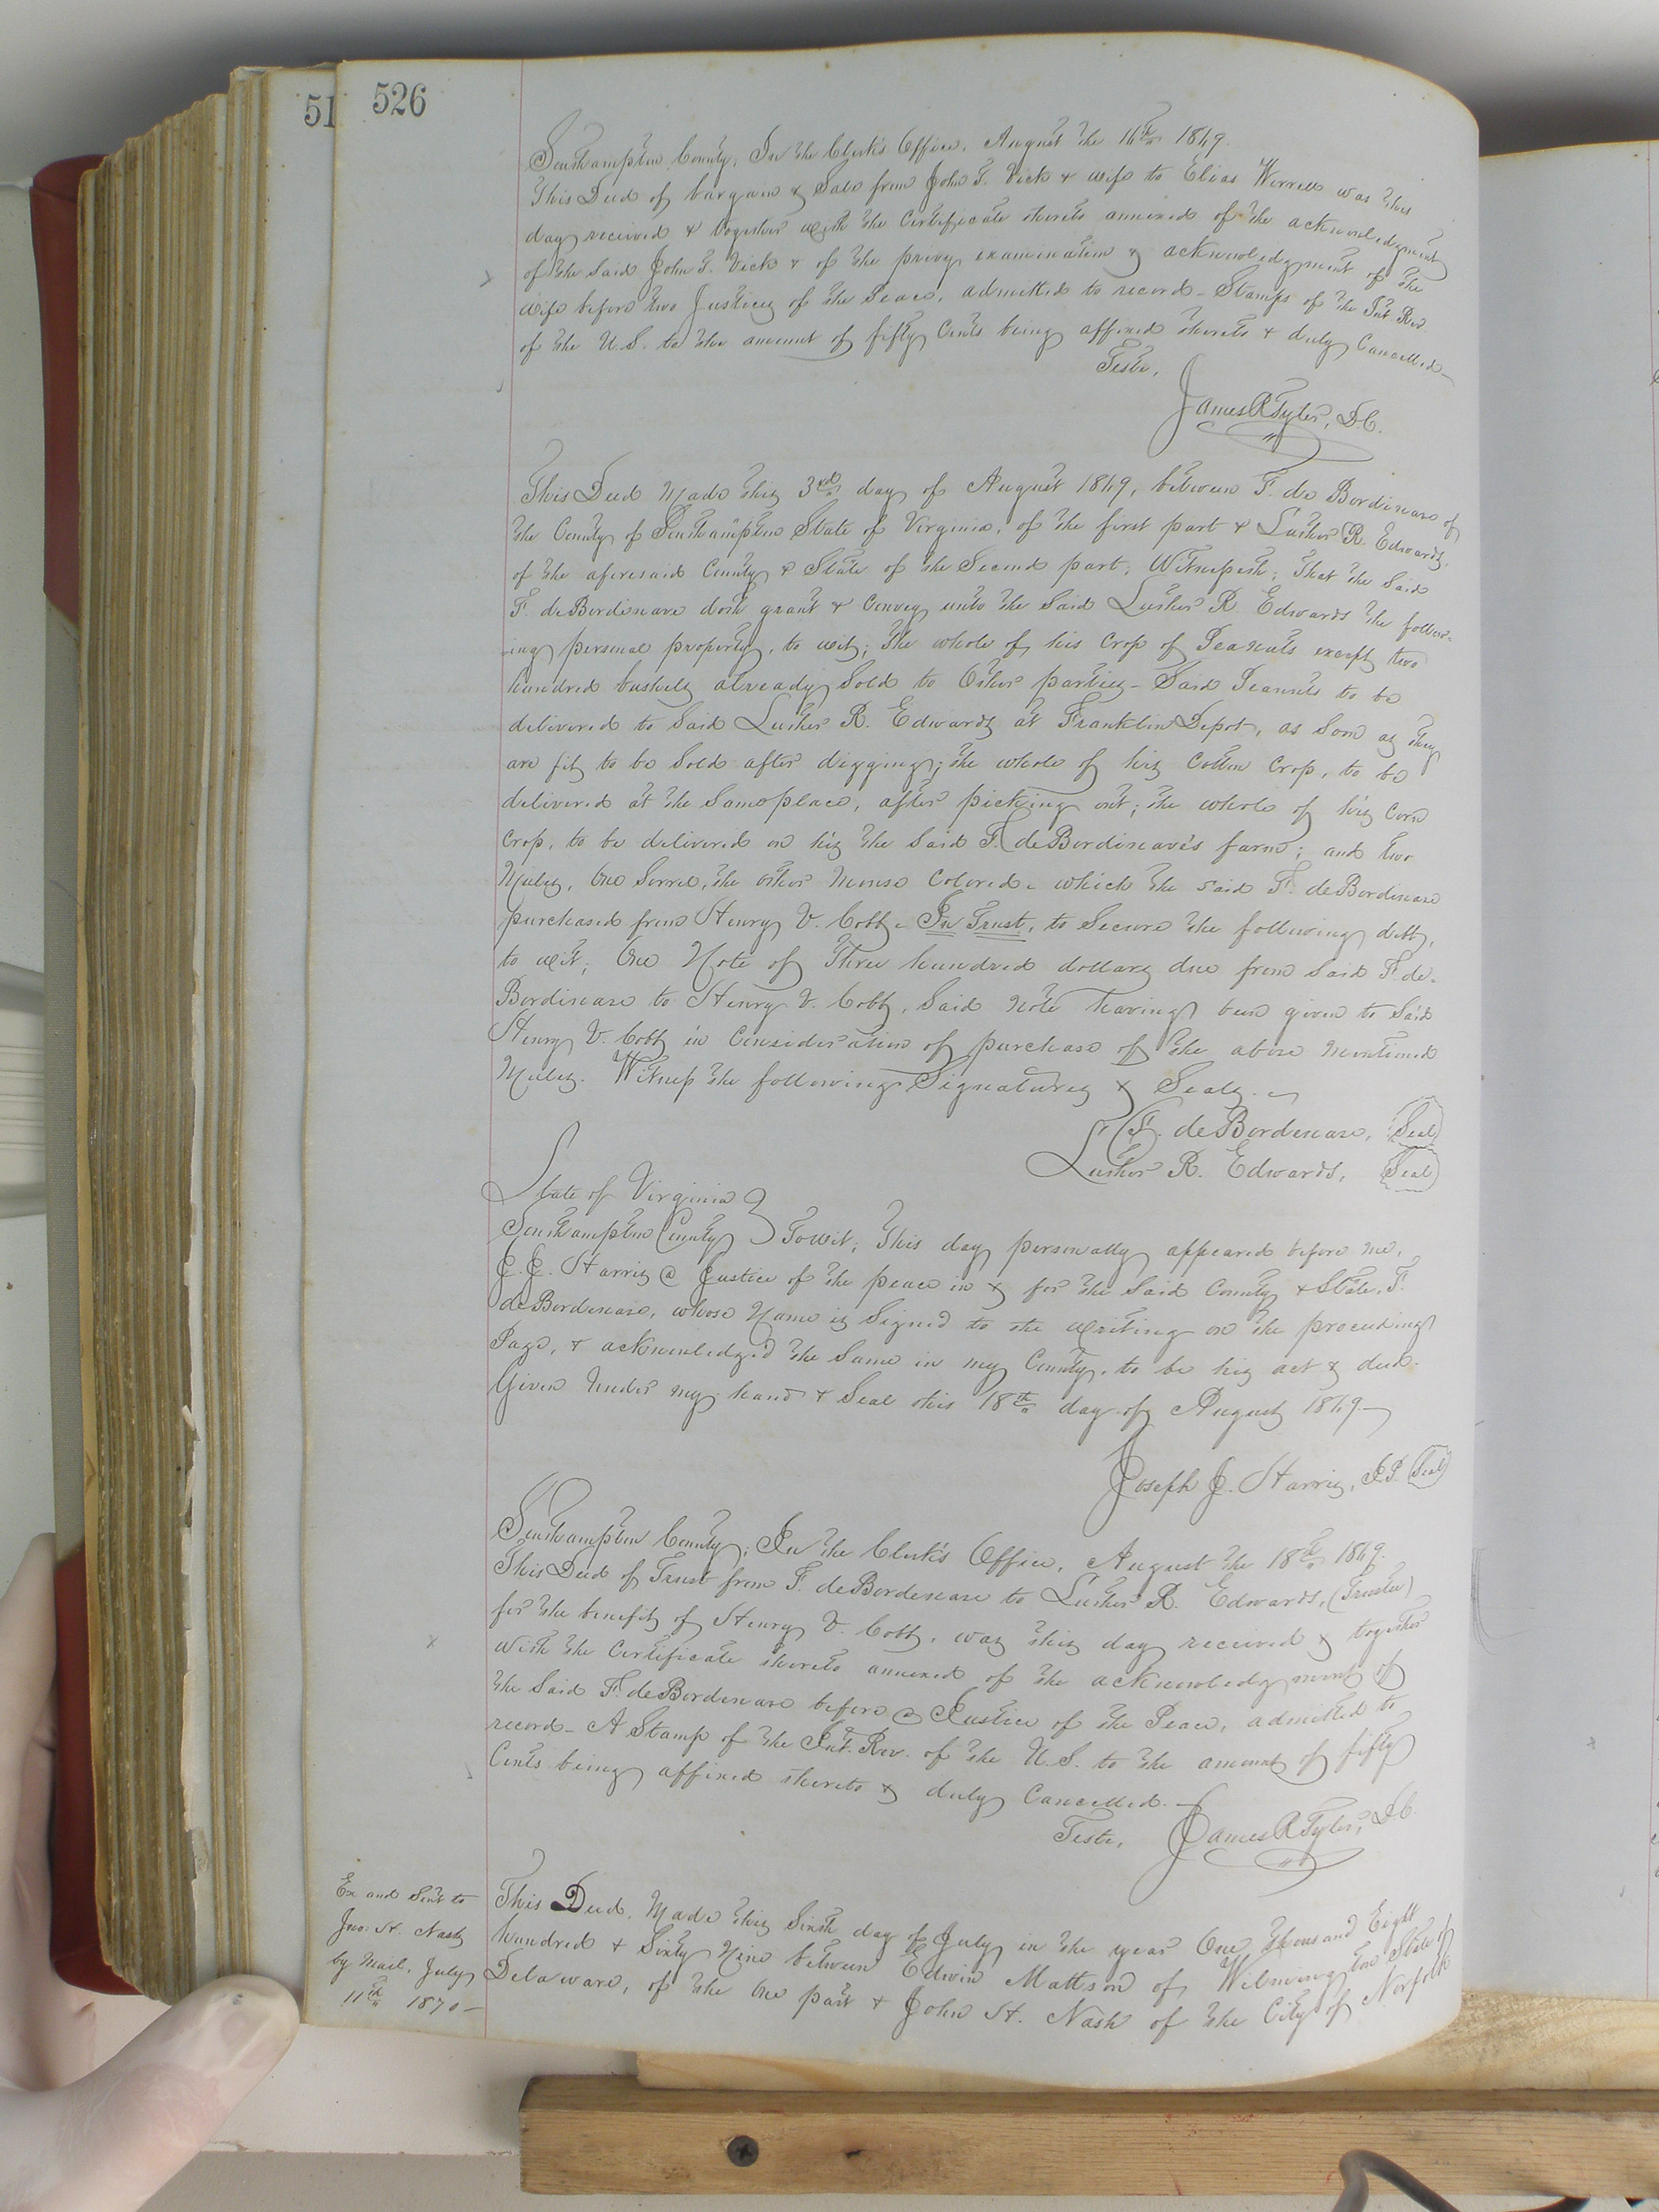 51
526
Southampton County, In the Clerk's Office, August the 16th 1869.
This Deed of bargain & Sale from John T. Vick & wife to Elias Worrell was this
day received & together with the Certificate thereto annexed of the acknowledgment
of the said John T. Vick & of the privy examination & acknowledgment of the
wife before two Justices of the Peace, admitted to record - Stamps of the Int Rev
of the U.S. to the amount of fifty Cents being affixed thereto & duly Cancelled -
Teste,
James R Tyler, D.C.
This Deed Made this 3rd day of August 1869, between F. de Bordenave of
the County of Southampton State of Virginia, of the first part & Luther R. Edwards,
of the aforesaid County & State of the Second part; Witnesseth; That the Said
F. deBordenave doth grant & Convey unto the Said Luther R. Edwards the follow-
ing personal property, to wit; the whole of his Crop of Peanuts except two
hundred bushels already Sold to Other parties - Said Peanuts to be
delivered to Said Luther R. Edwards at Franklin Depot, as Soon as they
are fit to be Sold after digging; the whole of his Cotton Crop, to be
delivered at the Same place, after picking out; the whole of his Corn
Crop, to be delivered on his the Said F. deBordenave's farm; and two
Mules, One Sorrel, the other Mouse Colored - which the said F. deBordenave
purchased from Henry V. Cobb - In Trust, to Secure the following debt,
to wit; One Note of Three hundred dollars due from Said F. de-
Bordenave to Henry V. Cobb, Said Note having been given to Said
Henry V. Cobb in Consideration of purchase of the above Mentioned
Mules. Witness the following Signatures & Seals. -
F. deBordenave, (Seal)
Luther R. Edwards, (Seal)
State of Virginia }
Southampton County } Towit; This day personally appeared before me,
J. J. Harris a Justice of the peace in & for the Said County & State, F.
deBordenave, whose Name is Signed to the writing on the preceeding
Page, & acknowledged the Same in my County, to be his act & deed.
Given Under my hand & Seal this 18th day of August 1869 -
Joseph J. Harris, J.P. (Seal)
Southampton County; In the Clerk's Office, August the 18th 1869.
This Deed of Trust from F. deBordenave to Luther R. Edwards, (Trustee)
for the benefit of Henry V. Cobb, was this day received & together
With the Certificate thereto annexed of the acknowledgment of
the Said F. deBordenave before a Justice of the Peace, admitted to
record - A Stamp of the Int. Rev. of the U.S. to the amount of fifty
Cents being affixed thereto & duly Cancelled. -
Teste, James R Tyler, D.C.
Ex and Sent to
Jno: H. Nash
by Mail, July
11th 1870 -
This Deed, Made this Sixth day of July, in the year One thousand Eight
hundred & Sixty Nine between Edwin Mattson of Wilmington State of
Delaware, of the One part & John H. Nash of the City of Norfolk